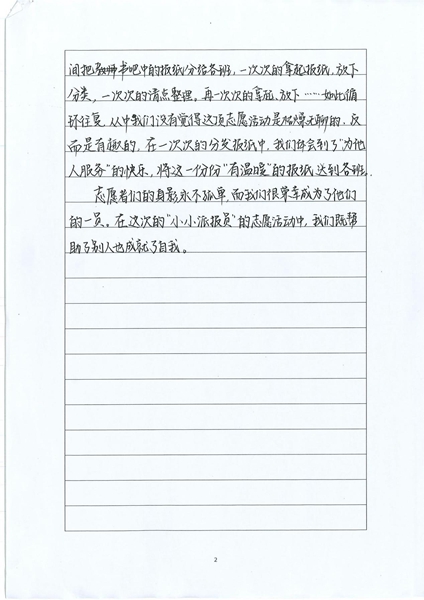 间把教师书吧中的报纸分给各班，一次次的拿起报纸、放下
分类，一次次的清点整理。再一次次的拿起、放下……如此循
环往复。从中我们没有觉得这项志愿活动是枯燥无聊的、反
而是有趣的。在一次次的分发报纸中，我们体会到了“为他
人服务”的快乐，将这一份份“有温暖”的报纸送到各班。
志愿者们的身影永不孤单，而我们很荣幸成为了他们
的一员。在这次的“小小派报员”的志愿活动中，我们既帮
助了别人也成就了自我。
2